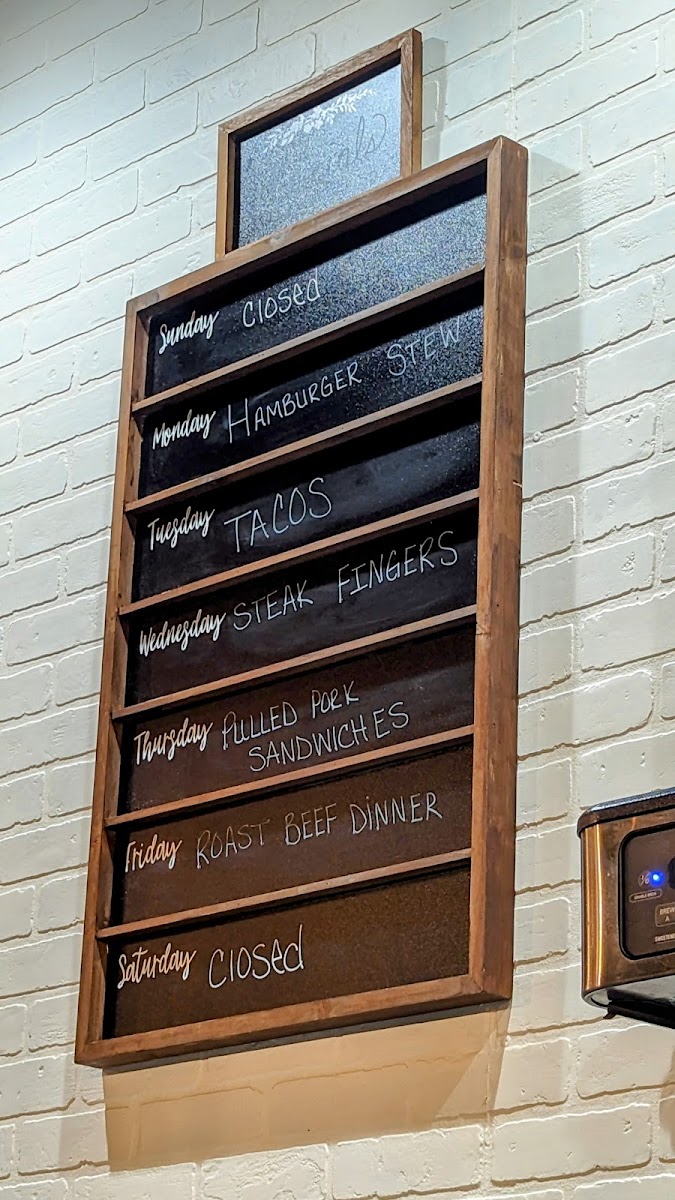 Sunday closed
Monday HAMBURGER STEW
Tuesday TACOS
Wednesday STEAK FINGERS
Thursday PULLED PORK
SANDWICHES
Friday ROAST BEEF DINNER
Saturday closed
BREW
A